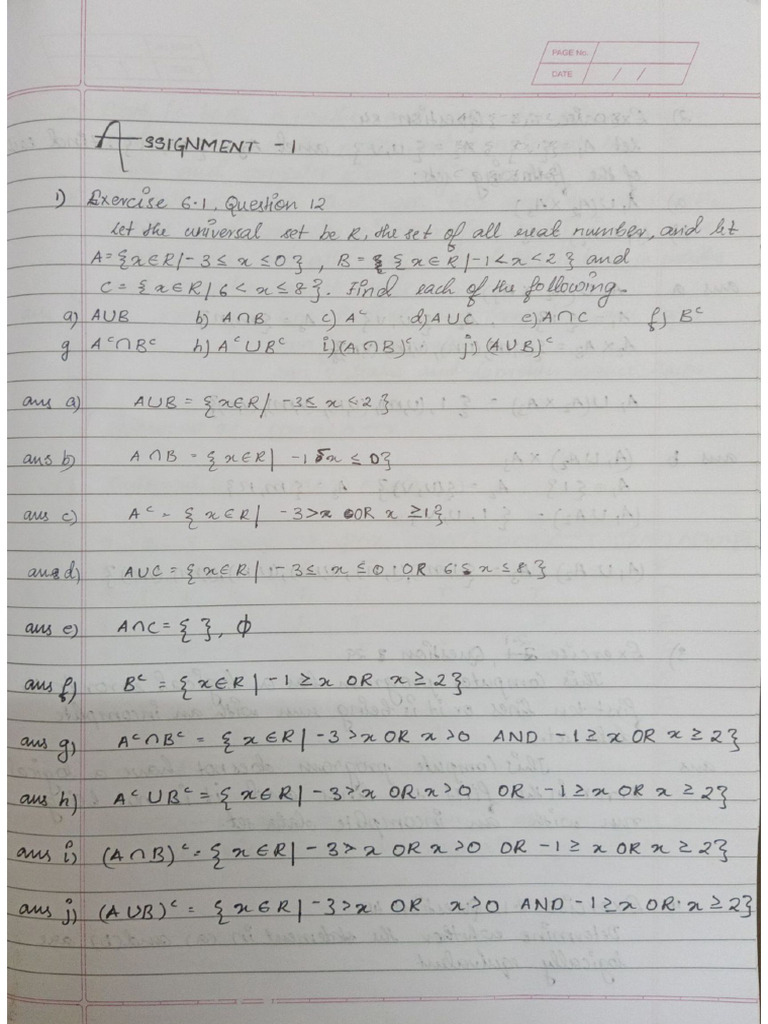 PAGE No.
DATE / /
ASSIGNMENT - 1
1) Exercise 6.1, Question 12
Let the universal set be R, the set of all real number, and let
A = {x∈R/ -3 ≤ x ≤ 0}, B = { {x∈R/ -1 < x < 2} and
C = {x∈R/ 6 < x ≤ 8}. Find each of the following.
a) A∪B b) A∩B c) Aᶜ d) A∪C e) A∩C f) Bᶜ
g Aᶜ∩Bᶜ h) Aᶜ∪Bᶜ i) (A∩B)ᶜ j) (A∪B)ᶜ
ans a) A∪B = {x∈R/ -3 ≤ x < 2}
ans b) A∩B = {x∈R/ -1 x ≤ 0}
ans c) Aᶜ = {x∈R/ -3 > x OR x ≥ 1}
ans d) A∪C = {x∈R/ -3 ≤ x ≤ 0 OR 6 ≤ x ≤ 8}
ans e) A∩C = { }, ϕ
ans f) Bᶜ = {x∈R/ -1 ≥ x OR x ≥ 2}
ans g) Aᶜ∩Bᶜ = {x∈R/ -3 > x OR x > 0 AND -1 ≥ x OR x ≥ 2}
ans h) Aᶜ∪Bᶜ = {x∈R/ -3 > x OR x > 0 OR -1 ≥ x OR x ≥ 2}
ans i) (A∩B)ᶜ = {x∈R/ -3 > x OR x > 0 OR -1 ≥ x OR x ≥ 2}
ans j) (A∪B)ᶜ = {x∈R/ -3 > x OR x > 0 AND -1 ≥ x OR x ≥ 2}